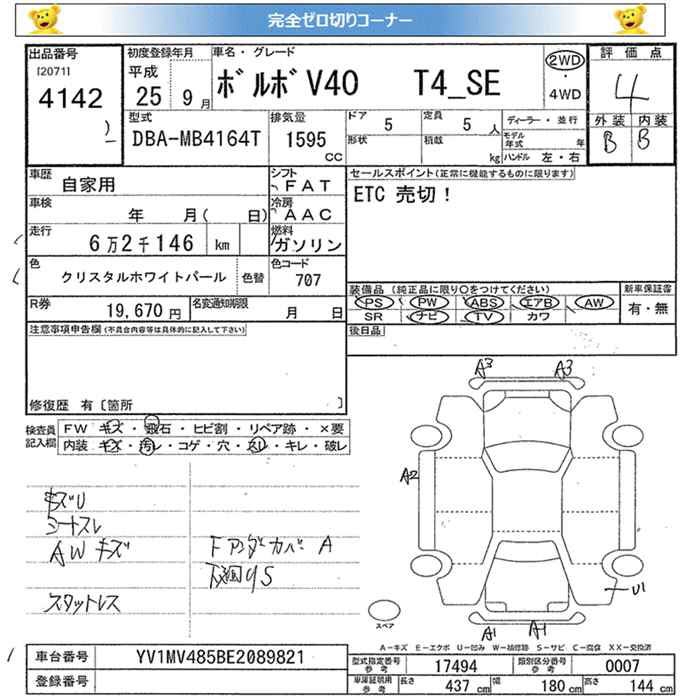 完全ゼロ切りコーナー
出品番号 初度登録年月 車名・グレード 評価点
[2071] 平成 ボルボV40 T4_SE 2WD
4142 25 9月 ・ 4WD 4
型式 排気量 ドア 5 定員 5人 ディーラー・並行 外装 内装
DBA-MB4164T 1595 cc 形状 積載 kg モデル年式 年 B B
ハンドル 左・右
車歴 自家用 シフト FAT セールスポイント(正常に機能するものに限ります)
車検 年 月( 日) 冷房 AAC ETC 売切!
走行 6万2千146 km 燃料 ガソリン
色 クリスタルホワイトパール 色替 色コード 707
装備品 (純正品に限り○をつけてください) 新車保証書
R券 19,670円 名変通知期限 月 日 PS PW ABS エアB AW 有・無
SR ナビ TV カワ
注意事項申告欄(不具合内容等は具体的に記入して下さい) 後日品
修復歴 有〔箇所 〕
検査員記入欄 FW キズ・飛石・ヒビ割・リペア跡・×要
内装 キズ・汚レ・コゲ・穴・スレ・キレ・破レ
A3 A3
A2
キズU
シートスレ
AWキズ ドアンダーカバー A
下廻りS
スタットレス
U1
スペア A1 A1
A-キズ E-エクボ U-凹み W-補修跡 S-サビ C-腐食 XX-交換済
車台番号 YV1MV485BE2089821 型式指定番号 参考 17494 類別区分番号 参考 0007
登録番号 車庫証明用 参考 長さ 437 cm 幅 180 cm 高さ 144 cm